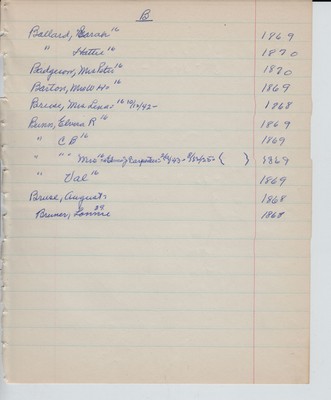 B
Ballard, Sarah 16 1869
" Hattie 16 1870
Badgerow, Mrs 16 1870
Barton, Mrs W H 16 1869
Mrs 16 10/10/42- 1868
Bunn, Elvira R 16 1869
" C B 16 1869
" " " Mrs 16 Carpenter ( ) 1869
" Val 16 1869
Bruse, August 1868
Bruner, Lonnie 29 1868